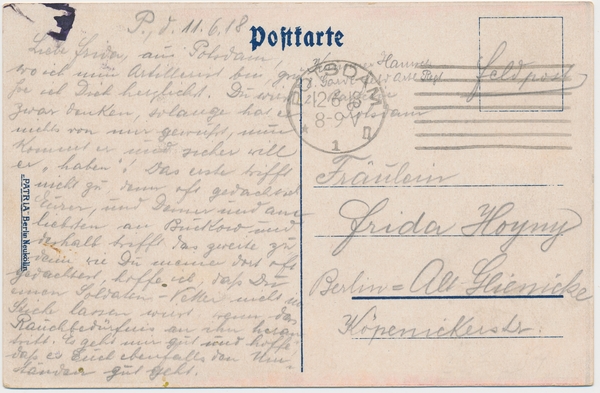 P., d. 11.6.18
Postkarte
Liebe Frieda, aus Potsdam,
wo ich nun Artillerist bin, grü-
ße ich Dich herzlichst. Du wirst
zwar denken, solange hat er
nichts von mir gewußt, nun
kommt er und sicher will
er „haben“! Das erste trifft
nicht zu, denn oft gedachte ich
Eurer, und Deiner und am
liebsten an Buckow und
deshalb trifft das zweite zu
denn wie Du meiner dort oft
gedachtest, hoffe ich, daß Du
einen Soldaten-Vetter nicht im
Stiche lassen wirst wenn das
Rauchbedürfnis an ihn heran
tritt. Es geht mir gut und hoffe
daß es Euch ebenfalls den Um-
ständen gut geht.
"PATRIA" Berlin-Neukölln
POTSDAM
12.6.18
8-9 V
* 1 n
Potsdam
Feldpost
Fräulein
Frida Hoyny
Berlin=Alt-Glienicke
Köpenickerstr.